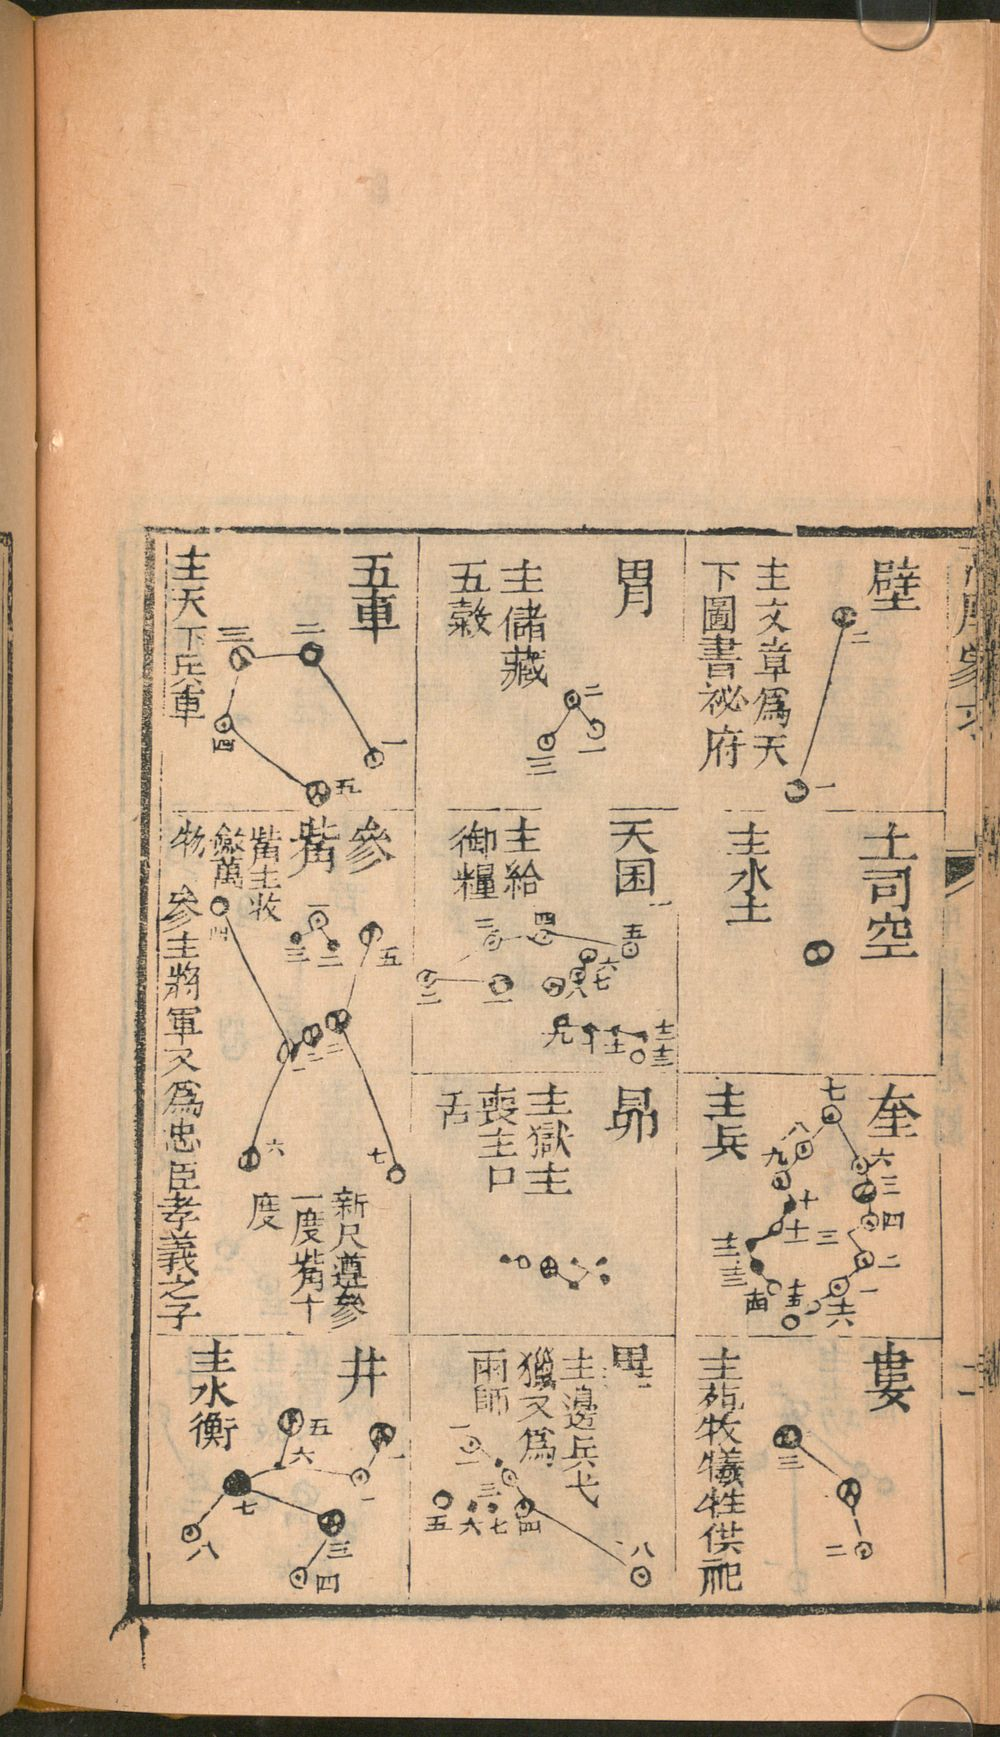 壁
主文章為天
下圖書祕府
二
一
土司空
主水土
奎
主兵
七
八
九
六
三
四
十
土
三
二
一
圭
六
婁
主苑牧犧牲供祀
三
二
胃
主儲藏
五穀
二
一
三
天囷
主給
御糧
五
四
三
六
七
八
一
二
九
十
昴
主獄主
喪主口
舌
畢
主邊兵弋
獵又爲
雨師
一
二
三
四
七
六
五
八
五車
主天下兵車
二
三
四
一
五
參
觜
觜主收
斂萬
物
參主將軍又爲忠臣孝義之子
一
二
三
四
五
一
二
三
六
七
新尺遵參
一度觜十
度
井
主水衡
五
六
二
一
七
八
三
四